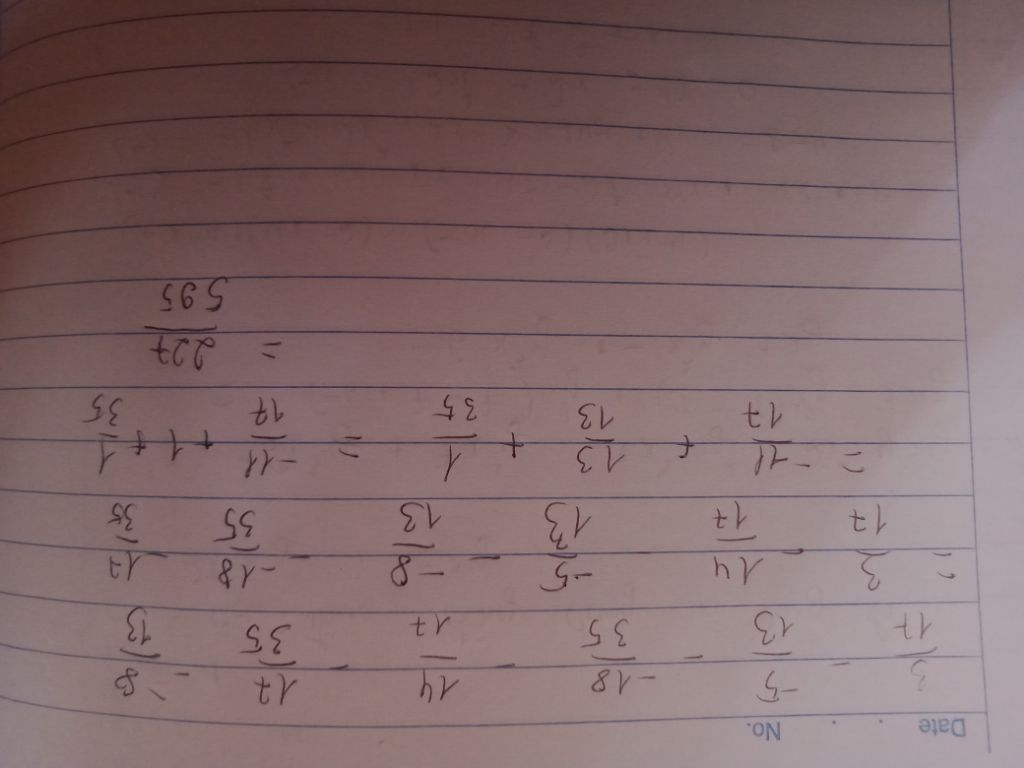 Date . . No.
3/17 - -5/13 - -18/35 - 14/17 - 17/35 - -8/13
= 3/17 - 14/17 - -5/13 - -8/13 - -18/35 - 17/35
= -11/17 + 13/13 + 1/35 = -11/17 + 1 + 1/35
= 227/595